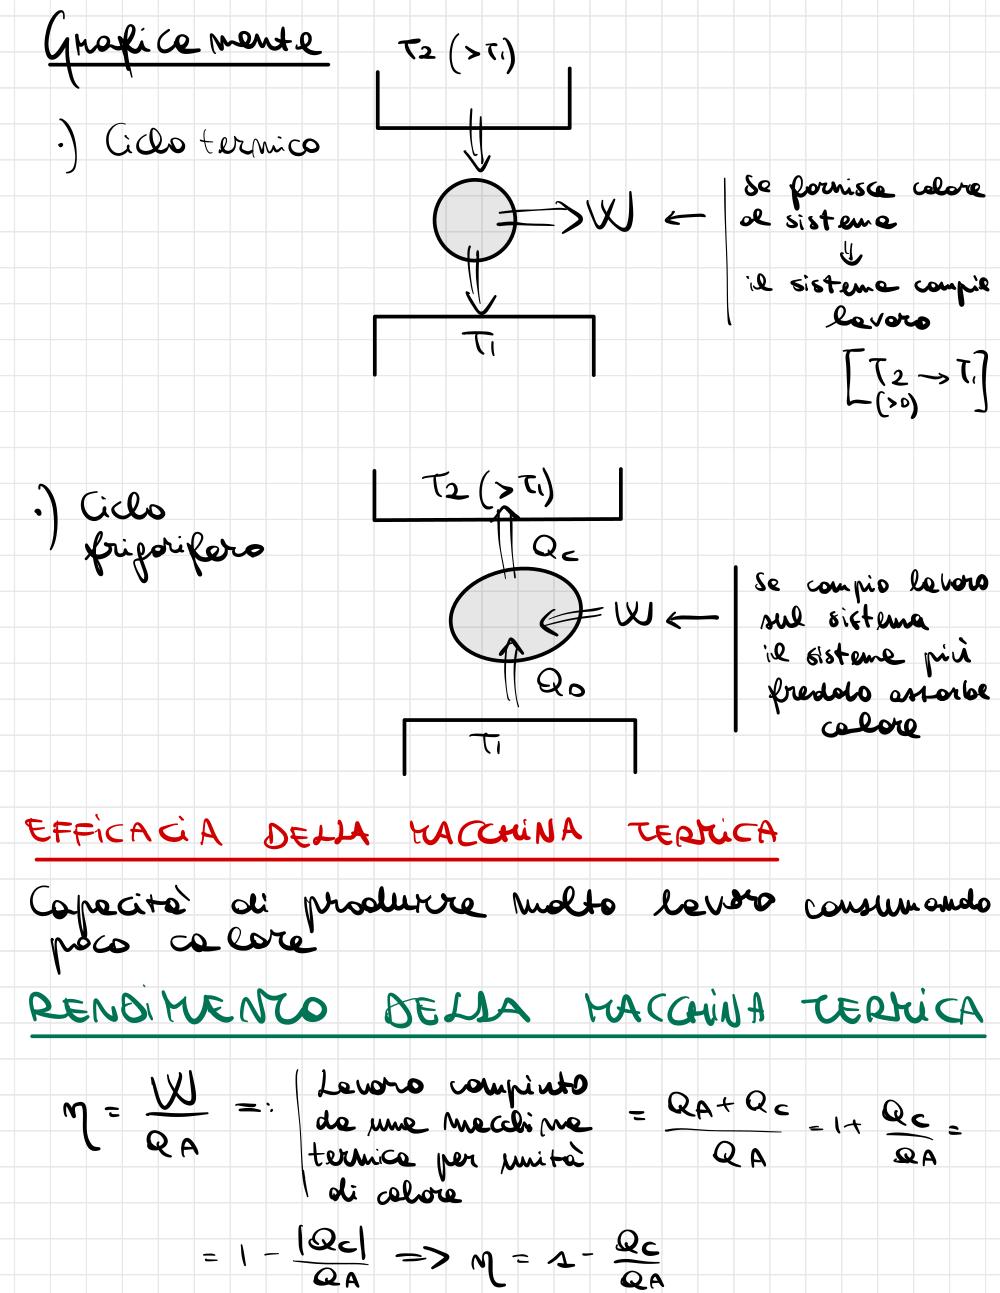 Graficamente
T2 (>T1)
·) Ciclo termico
W ←
se fornisce calore
al sistema
⇓
il sistema compie
lavoro
T1
[T2 → T1]
(>0)
·) Ciclo
frigorifero
T2 (>T1)
Qc
W ←
se compio lavoro
sul sistema
il sistema più
freddo assorbe
calore
QA
T1
EFFICACIA DELLA MACCHINA TERMICA
Capacità di produrre molto lavoro consumando
poco calore
RENDIMENTO DELLA MACCHINA TERMICA
η = W/QA =: | Lavoro compiuto da una macchina termica per unità di calore = (QA + Qc)/QA = 1 + Qc/QA =
= 1 - |Qc|/QA => η = 1 - Qc/QA